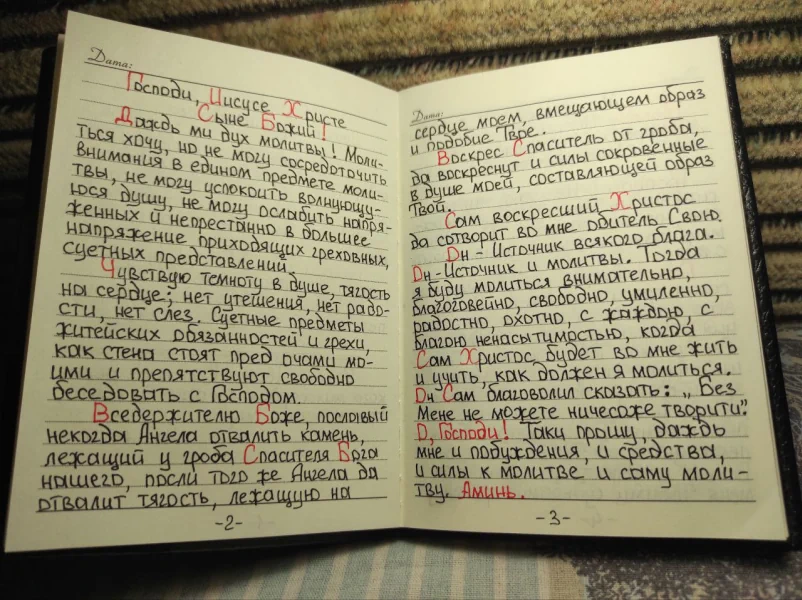 Дата:
Господи, Иисусе Христе
Сыне Божий!
Даждь ми дух молитвы! Моли-
ться хочу, но не могу сосредоточить
внимания в едином предмете моли-
твы, не могу успокоить волнующу-
юся душу, не могу ослабить напря-
женных и непрестанно в большее
напряжение приходящих греховных,
суетных представлений.
Чувствую темноту в душе, тягость
на сердце; нет утешения, нет радо-
сти, нет слез. Суетные предметы
житейских обязанностей и грехи,
как стена стоят пред очами мо-
ими и препятствуют свободно
беседовать с Господом.
Вседержителю Боже, пославый
некогда Ангела отвалить камень,
лежащий у гроба Спасителя Бога
нашего, посли того же Ангела да
отвалит тягость, лежащую на
-2-
Дата:
сердце моем, вмещающем образ
и подобие Твое.
Воскрес Спаситель от гроба,
да воскреснут и силы сокровенные
в душе моей, составляющей образ
Твой.
Сам воскресший Христос
да сотворит во мне обитель Свою.
Он - Источник всякого блага.
Он - Источник и молитвы. Тогда
я буду молиться внимательно,
благоговейно, свободно, умиленно,
радостно, охотно, с жаждою, с
благою ненасытимостью, когда
Сам Христос будет во мне жить
и учить, как должен я молиться.
Он Сам благоволил сказать: „Без
Мене не можете ничесоже творити".
О, Господи! Таки прошу, даждь
мне и побуждения, и средства,
и силы к молитве и саму моли-
тву. Аминь.
-3-